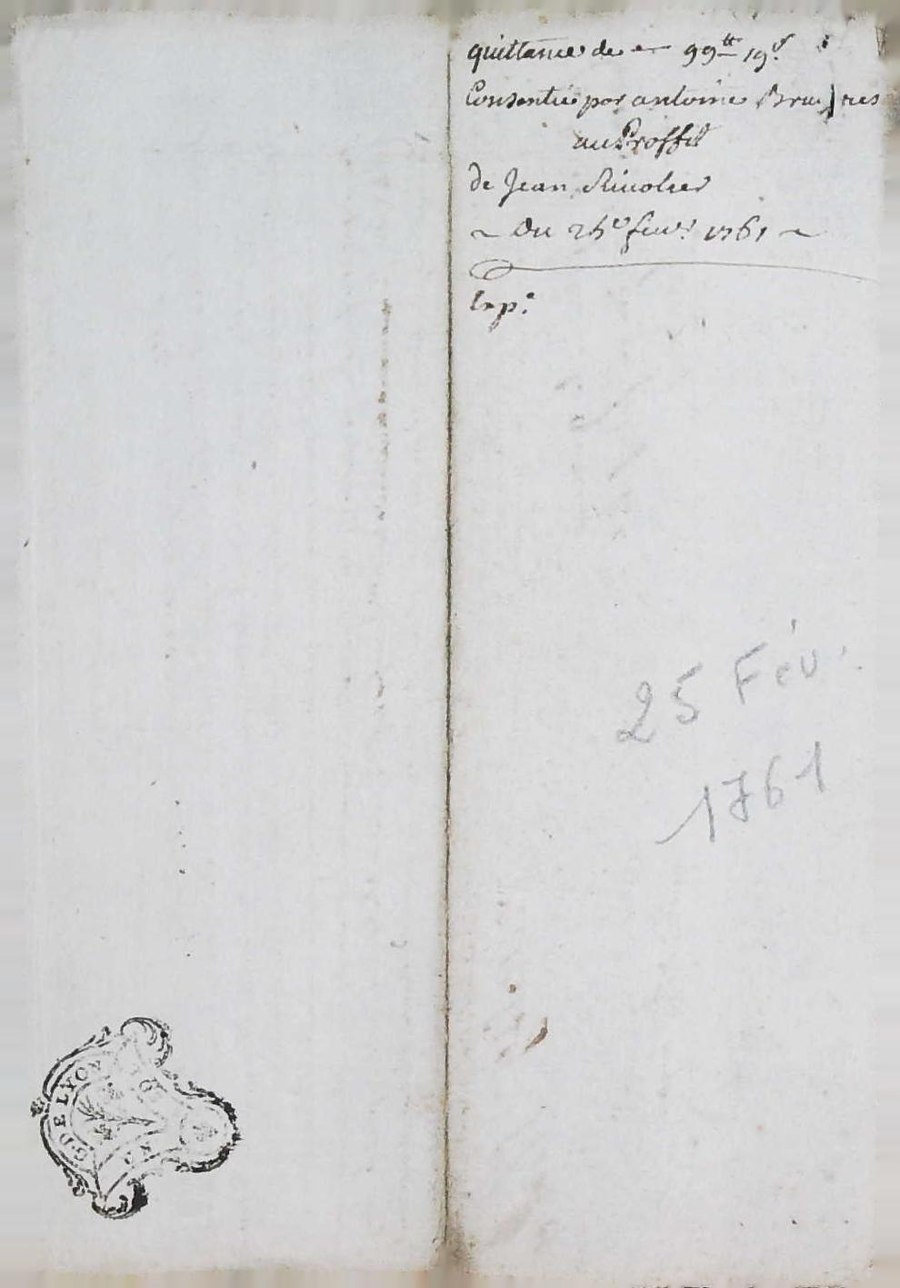 quittance de 99ᵗᵗ 19ˢ
Consentie par antoine
au Proffit
de Jean
~ Du 25ᵉ fevʳ 1761 ~
Exp.ᵉ
25 Fév.
1761
G. DE LYON